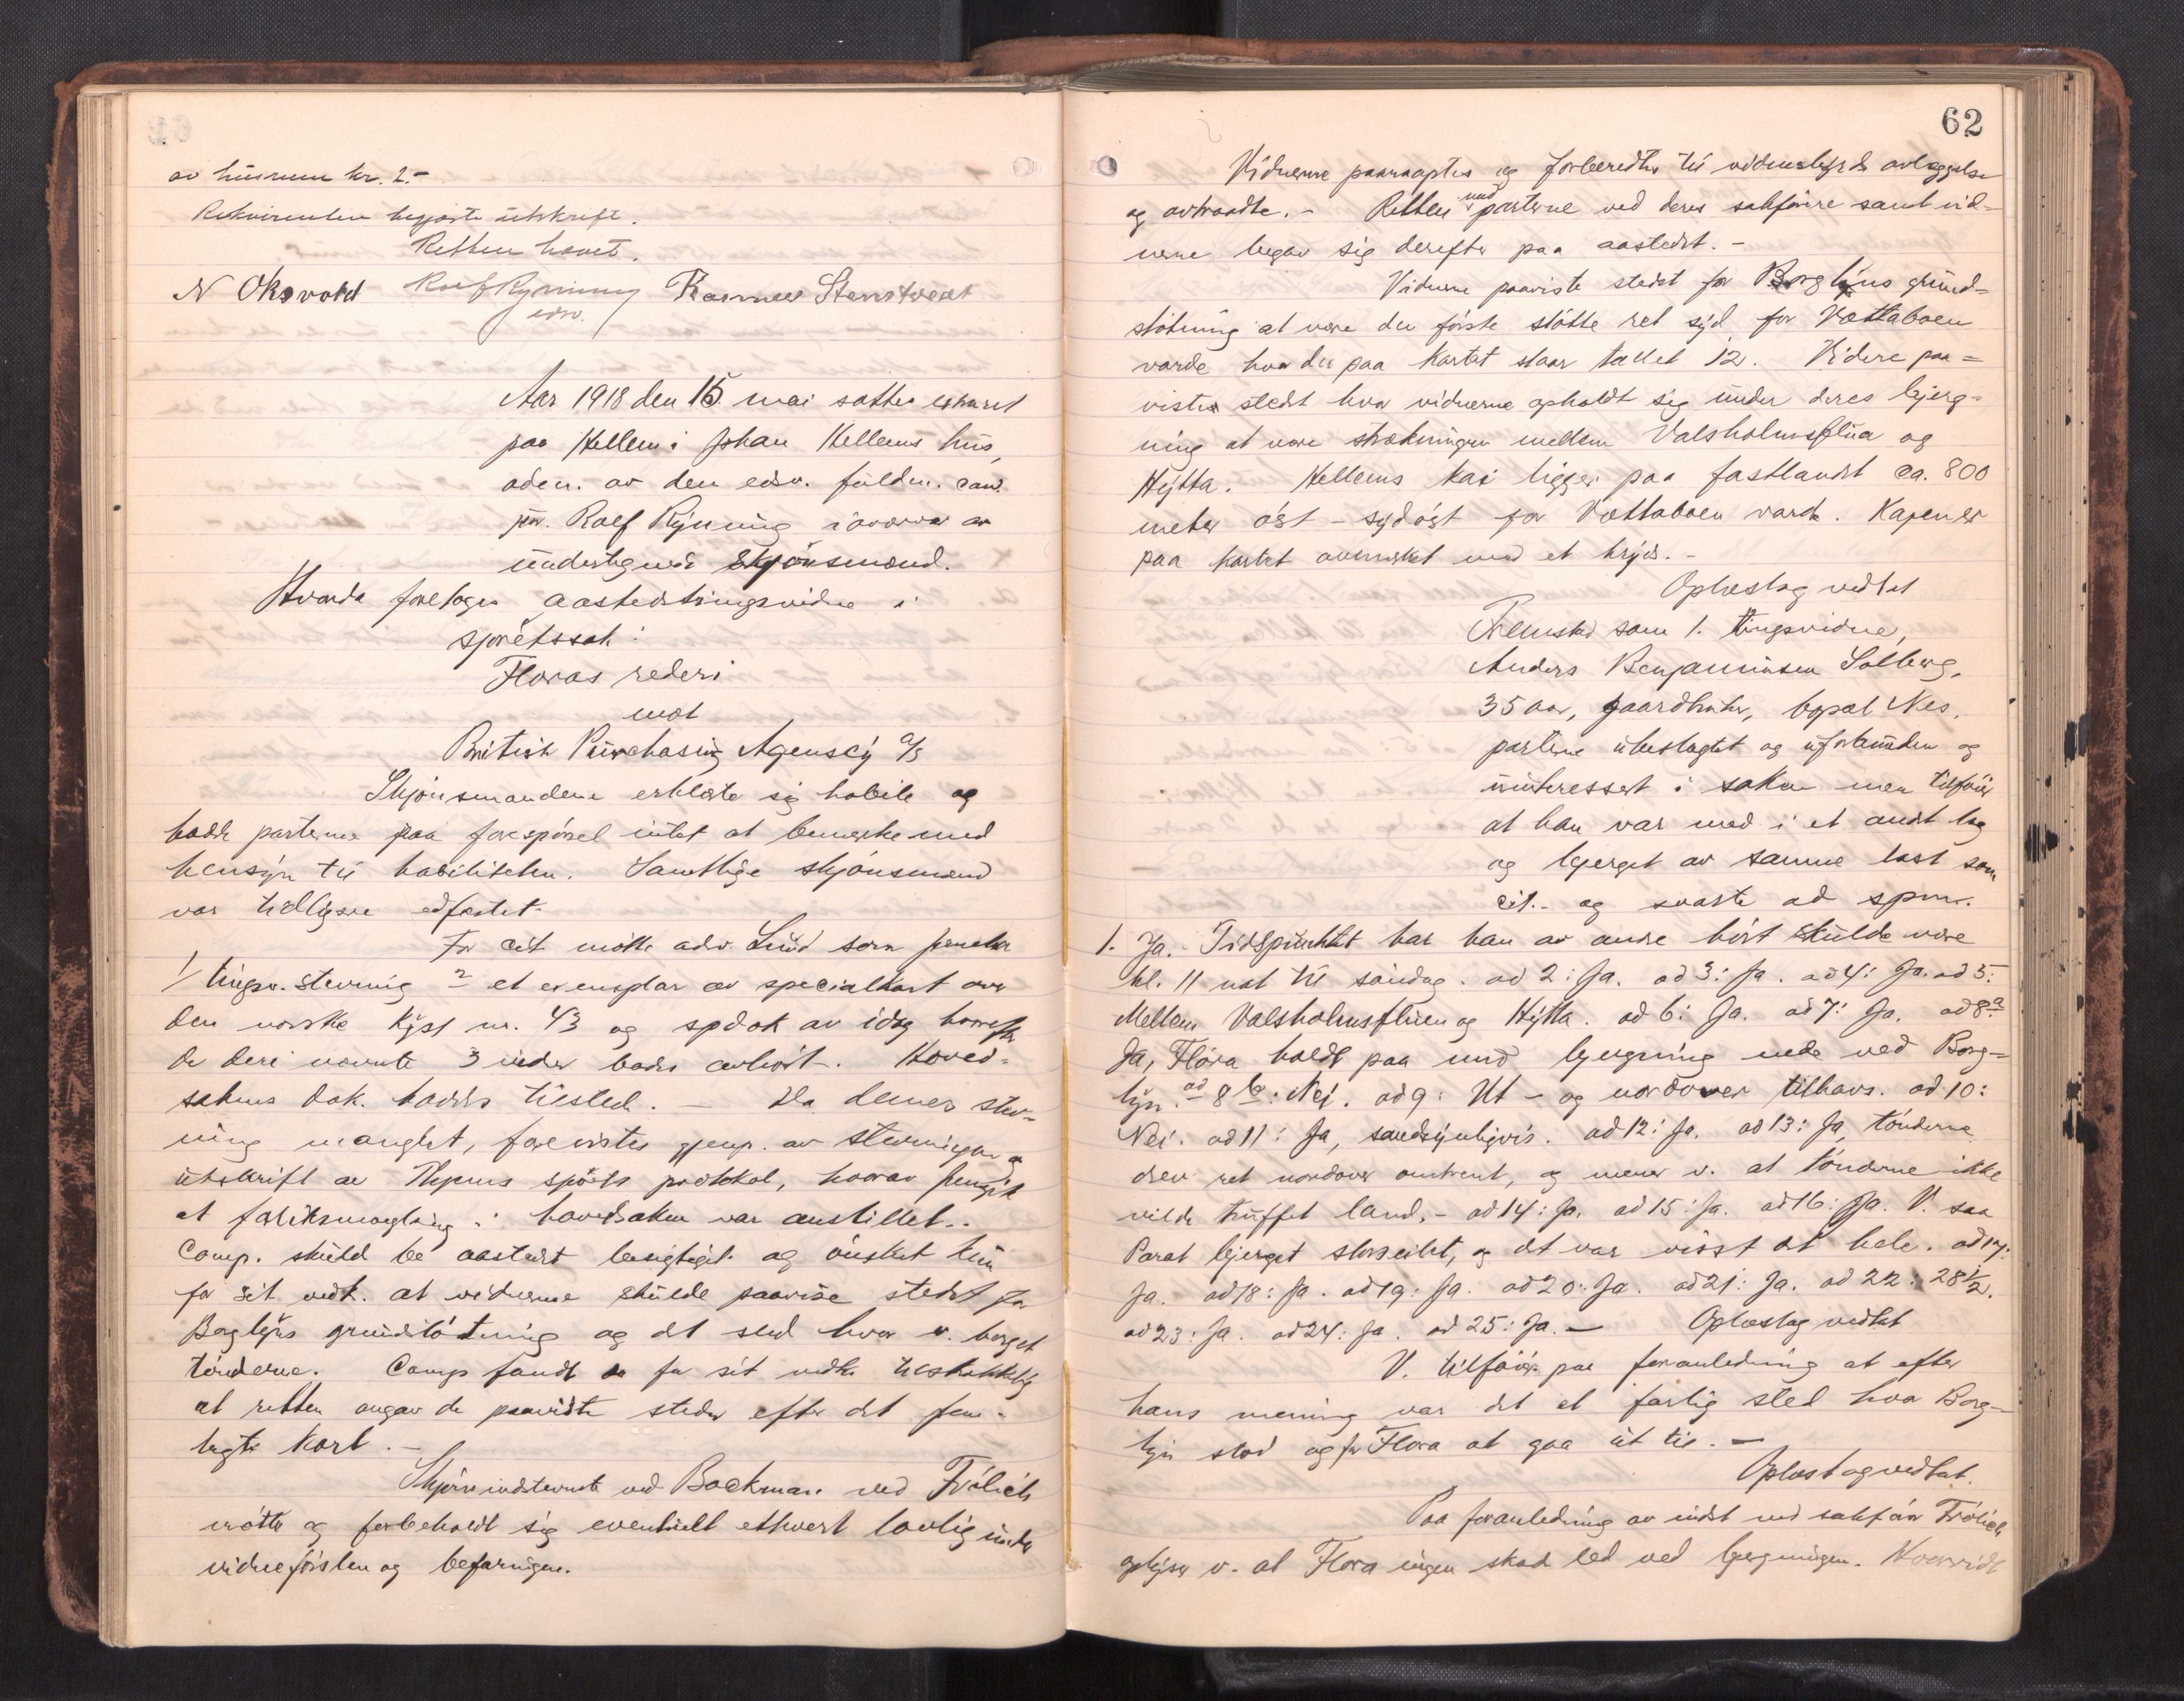 av husrum kr. 2.-
Rekvirenten begjærte utskrift.
Retten hævet.
N Oksvold Rolf Ryning Rasmus Stenstvedt
edsv.
Aar 1918 den 15. mai sattes extraret
paa Hellem i Johan Hellems hus,
adm. av den edsv. fuldm. cand.
jur. Rolf Ryning i overvær av
undertegnede skjønsmænd.
Hvorda foretoges aastedstingsvidne i
sjøretssak:
Floras rederi
mot
British Purchasing Agenscy A/S
Skjønsmændene erklærte sig habile og
hadde parterne paa forespørsel intet at bemerke med
hensyn til habiliteten. Samtlige skjønsmænd
var tidligere edfæstet.
For cit. møtte adv. Lund som fremla
1/ tingsv. stevning 2 et exemplar av specialkart over
den norske kyst nr. 43 og spdok av idag hvorefter
de deri nævnte 3 vidner bades avhørt. Hoved-
sakens dok. haddes tilstede. – Da dennes stev-
ning manglet, forevistes gjenp. av stevningen og
utskrift av sjørets protokol, hvorav fremgik
at forliksmægling i hovedsaken var anstillet.
Comp. skuld be aastedet besigtiget og ønsket kun
for sit vedk. at vidnerne skulde paavise stedet for
Borglyns grundstøtning og det sted hvor v. berget
tønderne. Comp fandt for sit vedk. tilstrækkelig
at retten angav de paaviste steder efter det frem-
lagte kart. –
Skjøn indstevnte ved Backman ved Frölich
møtte og forbeholdt sig eventuelt ethvert lovlig under
vidneførslen og befaringen.
62
Vidnerne paaraaptes og forberedtes til vidnesbyrds avlæggelse
og avtraadte. – Retten med parterne ved deres sakførere samt vid-
nerne begav sig derefter paa aastedet. –
Vidnerne paaviste stedet for Borglyns grund-
støtning at være den første støtte ret syd for Vættaboen
varde hvor der paa kartet staar tallet 12. Videre paa-
vistes stedet hvor vidnerne opholdt sig under deres bjerg-
ning at være strækningen mellem Valsholmsflua og
Hytta. Hellems kai ligger paa fastlandet ca. 800
meter øst – sydøst for Vættaboen varde. Kajen er
paa kartet avmerket med et kryds. –
Oplæst og vedtat
Fremstod som 1. tingsvidne,
Anders Benjaminsen Solberg,
35 aar, gaardbruker, bopæl Nes,
parterne ubeslegtet og uforbunden og
uinteressert i saken men tilføier
at han var med i et andet lag
og bjerget av samme last som
cit. – og svarte ad spm.
1. Ja. – Tidspunktet har han av andre hørt skulde være
kl. 11 nat til søndag. ad 2: Ja. ad 3: Ja. ad 4: Ja. ad 5:
Mellem Valsholmsfluen og Hytta. ad 6: Ja. ad 7: Ja. ad 8a
Ja, Flora holdt paa med bjergning nede ved Borg-
lyn. ad 8b: Nej. ad 9: Ut – og nordover tilhavs. ad 10:
Nei. ad 11: Ja, sandsynligvis. ad 12: Ja. ad 13: Ja, tønderne
drev ret nordover omtrent, og mener v. at tønderne ikke
vilde truffet land. – ad 14: Ja. ad 15: Ja. ad 16: Ja. V. saa
Parat bjerget storseilet, og det var visst at hele. ad 17:
Ja. ad 18: Ja. ad 19: Ja. ad 20: Ja. ad 21: Ja. ad 22: 28½.
ad 23: Ja. ad 24: Ja. ad 25: Ja. – Oplæst og vedtat
V. tilføier paa foranledning at efter
hans mening var det et farlig sted hvor Borg-
lyn stod og for Flora at gaa ut til. –
Oplæst og vedtat.
Paa foranledning av indst ved sakfører Frölich
oplyser v. at Flora ingen skade led ved bjergningen. Hvorvidt